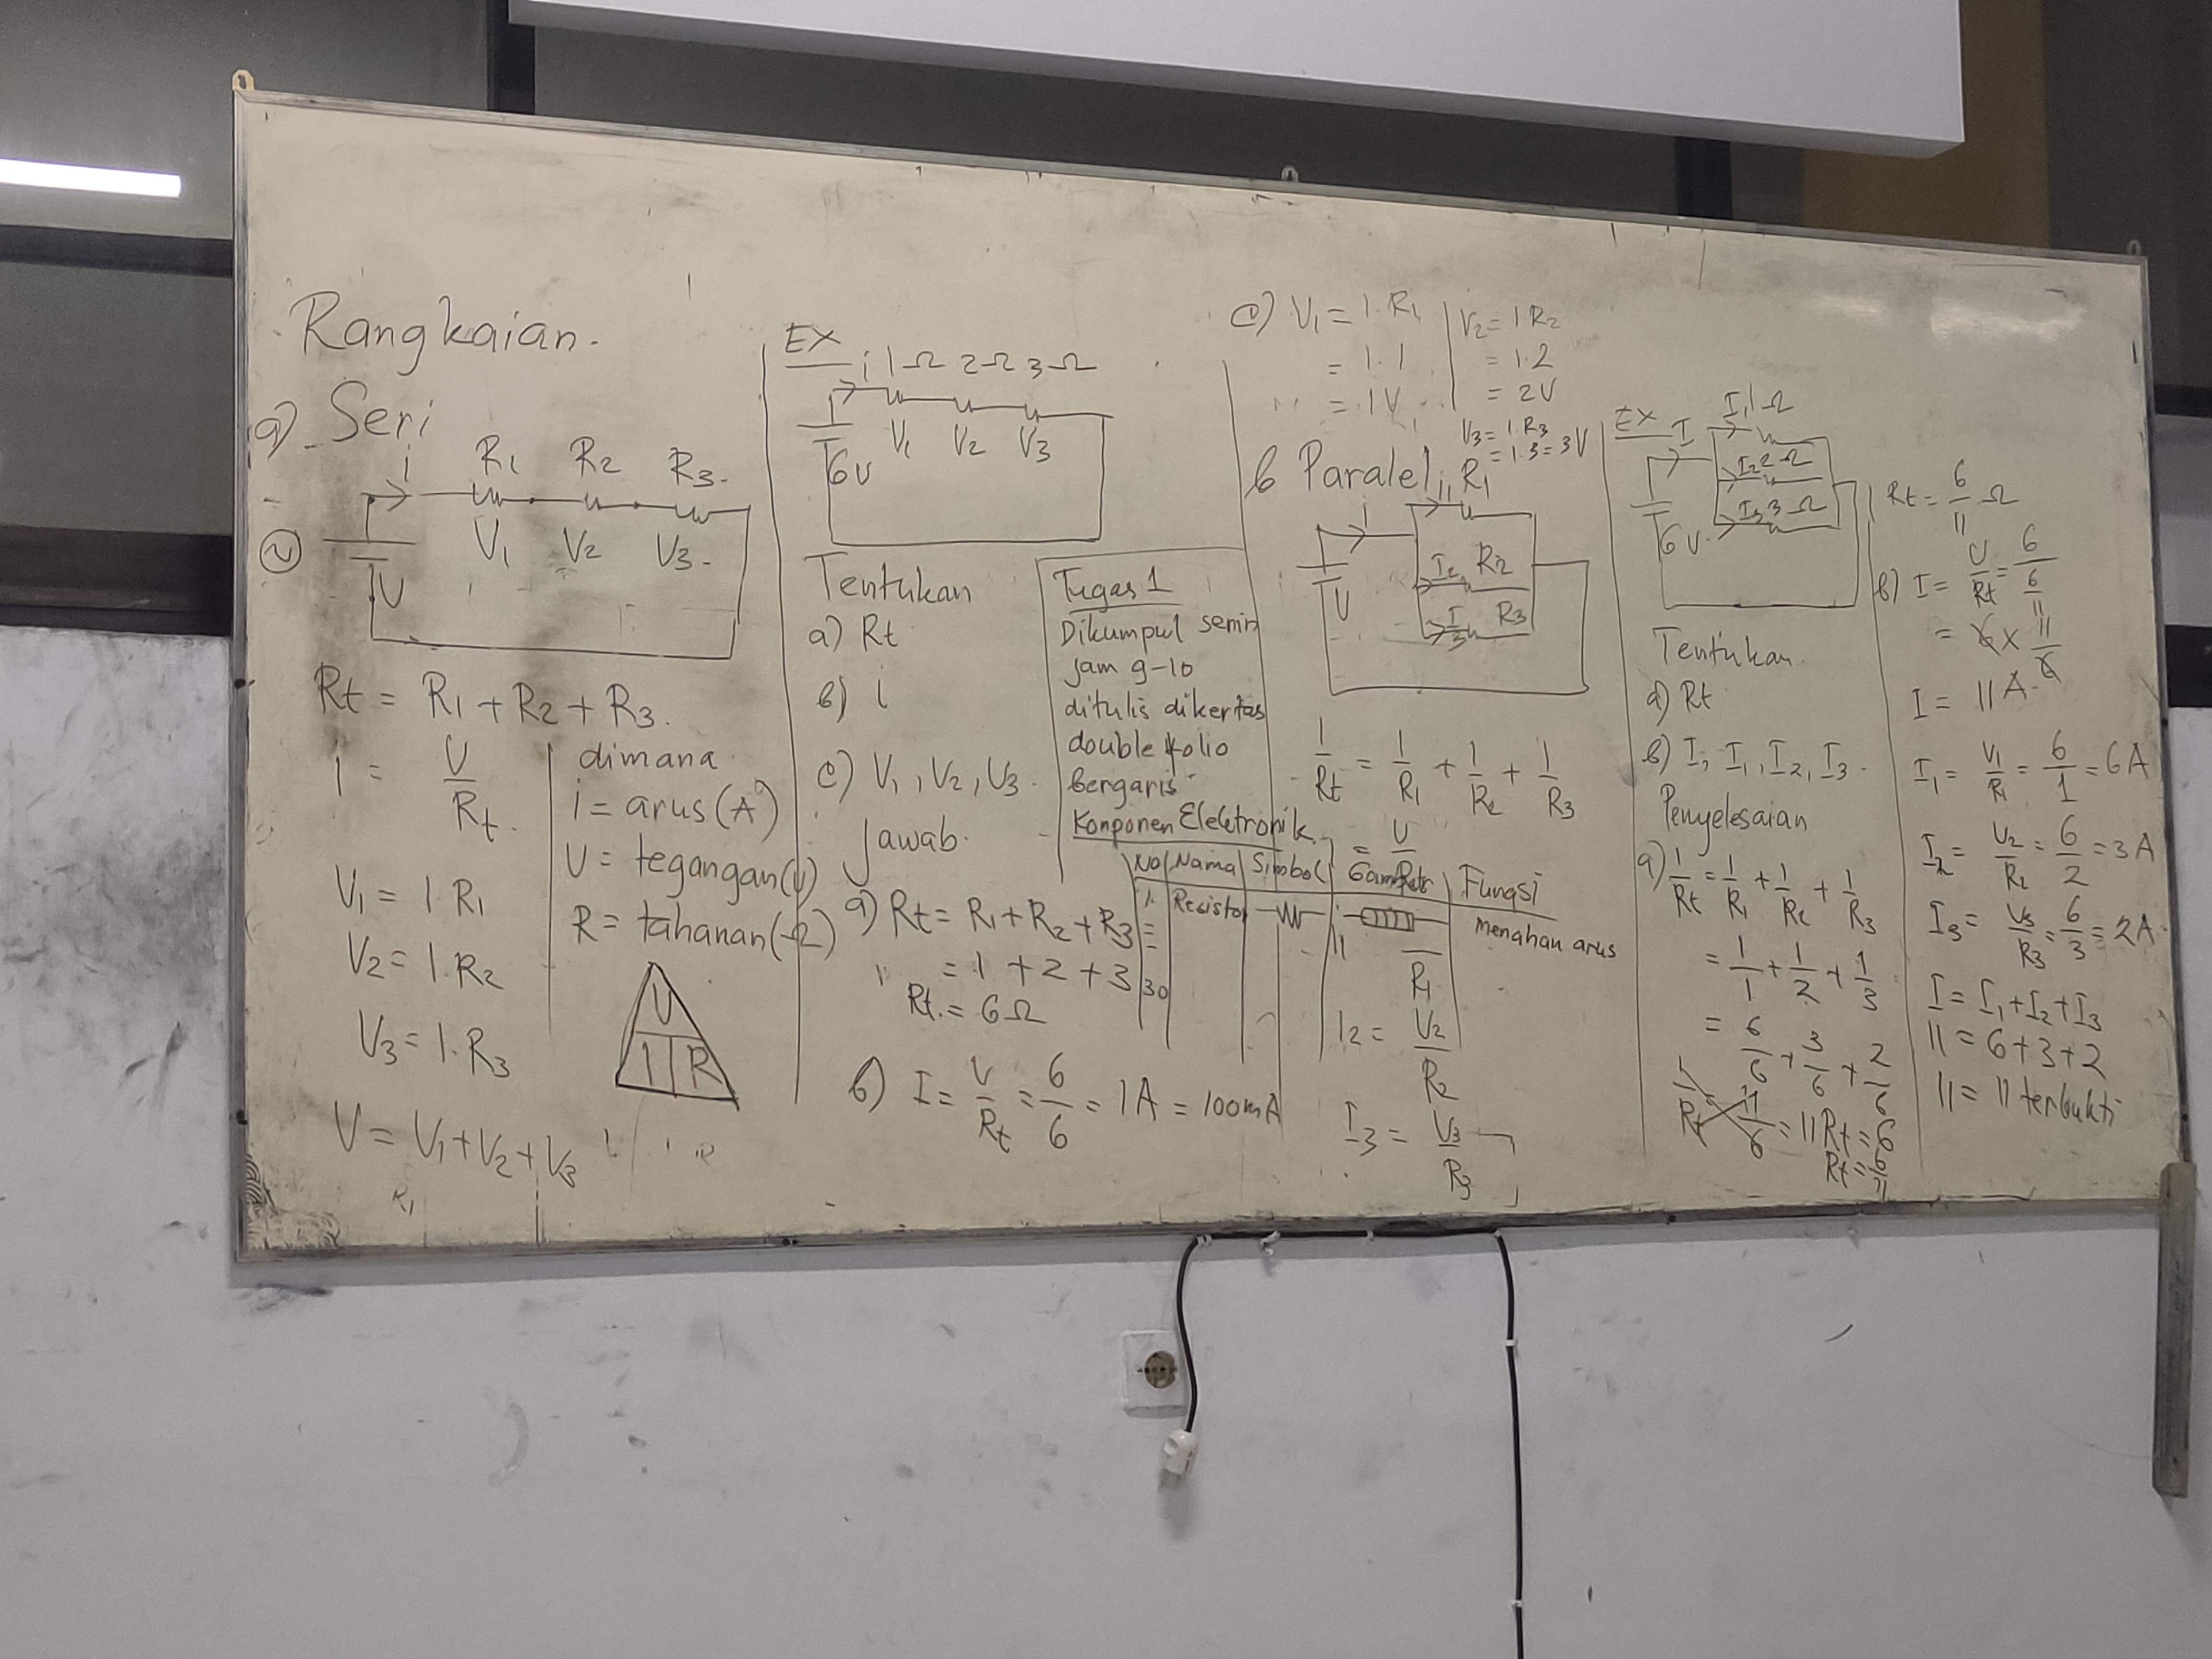 Rangkaian.
a) Seri
i R1 R2 R3.
V1 V2 V3.
V
Rt = R1 + R2 + R3.
I = V/Rt.
dimana
i = arus (A)
V = tegangan (V)
R = tahanan (Ω)
V1 = I.R1
V2 = I.R2
V3 = I.R3
V
I R
V = V1 + V2 + V3
R1
EX
i 1Ω 2Ω 3Ω
V1 V2 V3
6V
Tentukan
a) Rt
b) i
c) V1, V2, V3.
Jawab.
a) Rt = R1 + R2 + R3
= 1 + 2 + 3
Rt = 6Ω
b) I = V/Rt = 6/6 = 1A = 100mA
Tugas 1
Dikumpul senin
jam 9-10
ditulis dikertas
double folio
bergaris
Komponen Elektronik
No Nama Simbol Gambar Fungsi
1. Resistor menahan arus
30
c) V1 = I.R1
= 1.1
= 1V
V2 = I R2
= 1.2
= 2V
V3 = I.R3
= 1.3 = 3V
b Paralel
i I1 R1
I2 R2
I3 R3
V
1/Rt = 1/R1 + 1/R2 + 1/R3
= V/Rt
R1
I2 = V2/R2
I3 = V3/R3
EX
I I1 1Ω
I2 2Ω
I3 3Ω
6V.
Tentukan.
a) Rt
b) I, I1, I2, I3.
Penyelesaian
a) 1/Rt = 1/R1 + 1/R2 + 1/R3
= 1/1 + 1/2 + 1/3
= 6/6 + 3/6 + 2/6
1/Rt 11/6 = 11Rt = 6
Rt = 6/11
Rt = 6/11 Ω
b) I = V/Rt = 6/6/11
= 6 x 11/6
I = 11 A.
I1 = V1/R1 = 6/1 = 6A
I2 = V2/R2 = 6/2 = 3A
I3 = V3/R3 = 6/3 = 2A
I = I1 + I2 + I3
11 = 6 + 3 + 2
11 = 11 terbukti